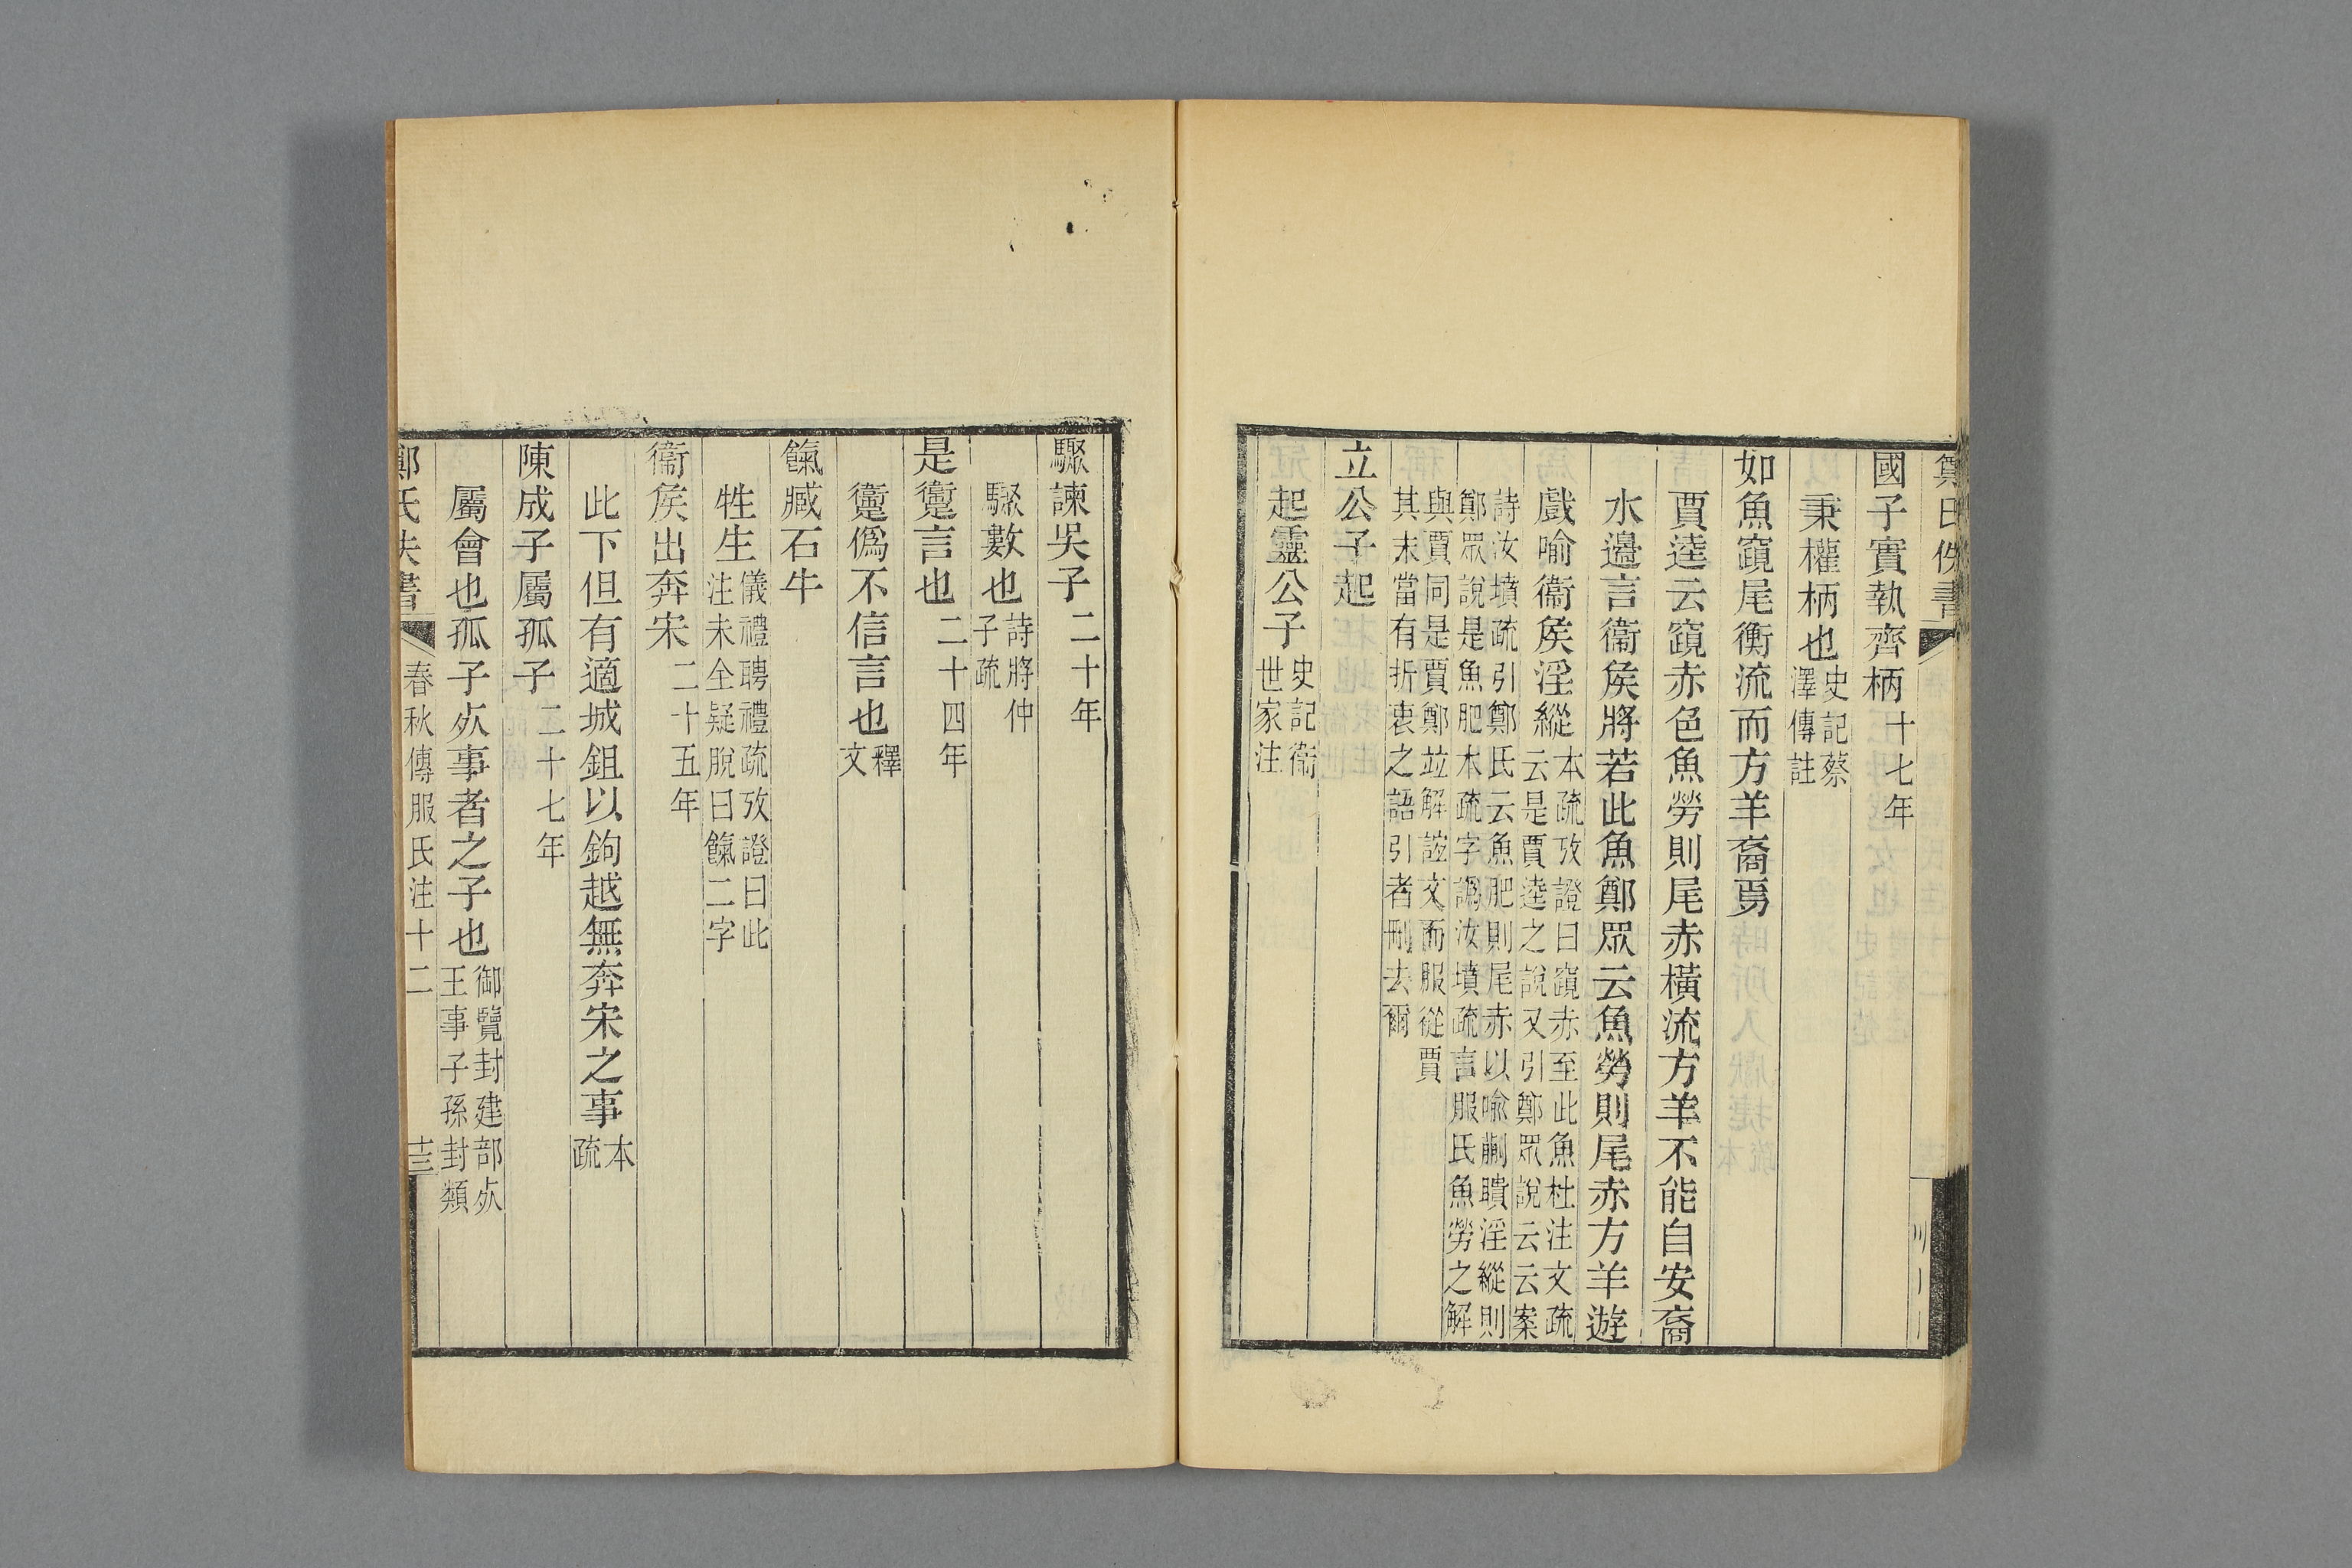 鄭氏佚書
國子實執齊柄十七年
秉權柄也史記蔡澤傳註
如魚竀尾衡流而方羊裔焉
賈逵云竀赤色魚勞則尾赤橫流方羊不能自安裔
水邊言衞矦將若此魚鄭眾云魚勞則尾赤方羊遊
戲喻衞矦淫縱本疏攷證曰竀赤至此魚杜注文疏云是賈逵之說又引鄭眾說云云案
詩汝墳疏引鄭氏云魚肥則尾赤以喻蒯聵淫縱則鄭眾說是魚肥本疏字譌汝墳疏言服氏魚勞之解
與賈同是賈鄭竝解誼文而服從賈其末當有折衷之語引者刪去爾
立公子起
起靈公子史記衞世家注
驟諫吳子二十年
驟數也詩將仲子疏
是躗言也二十四年
躗僞不信言也釋文
餼臧石牛
牲生儀禮聘禮疏攷證曰此注未全疑脫曰餼二字
衞矦出奔宋二十五年
此下但有適城鉏以鉤越無奔宋之事本疏
陳成子屬孤子二十七年
屬會也孤子𣦸事者之子也御覽封建部𣦸王事子孫封類
鄭氏佚書
春秋傳服氏注十二
十三